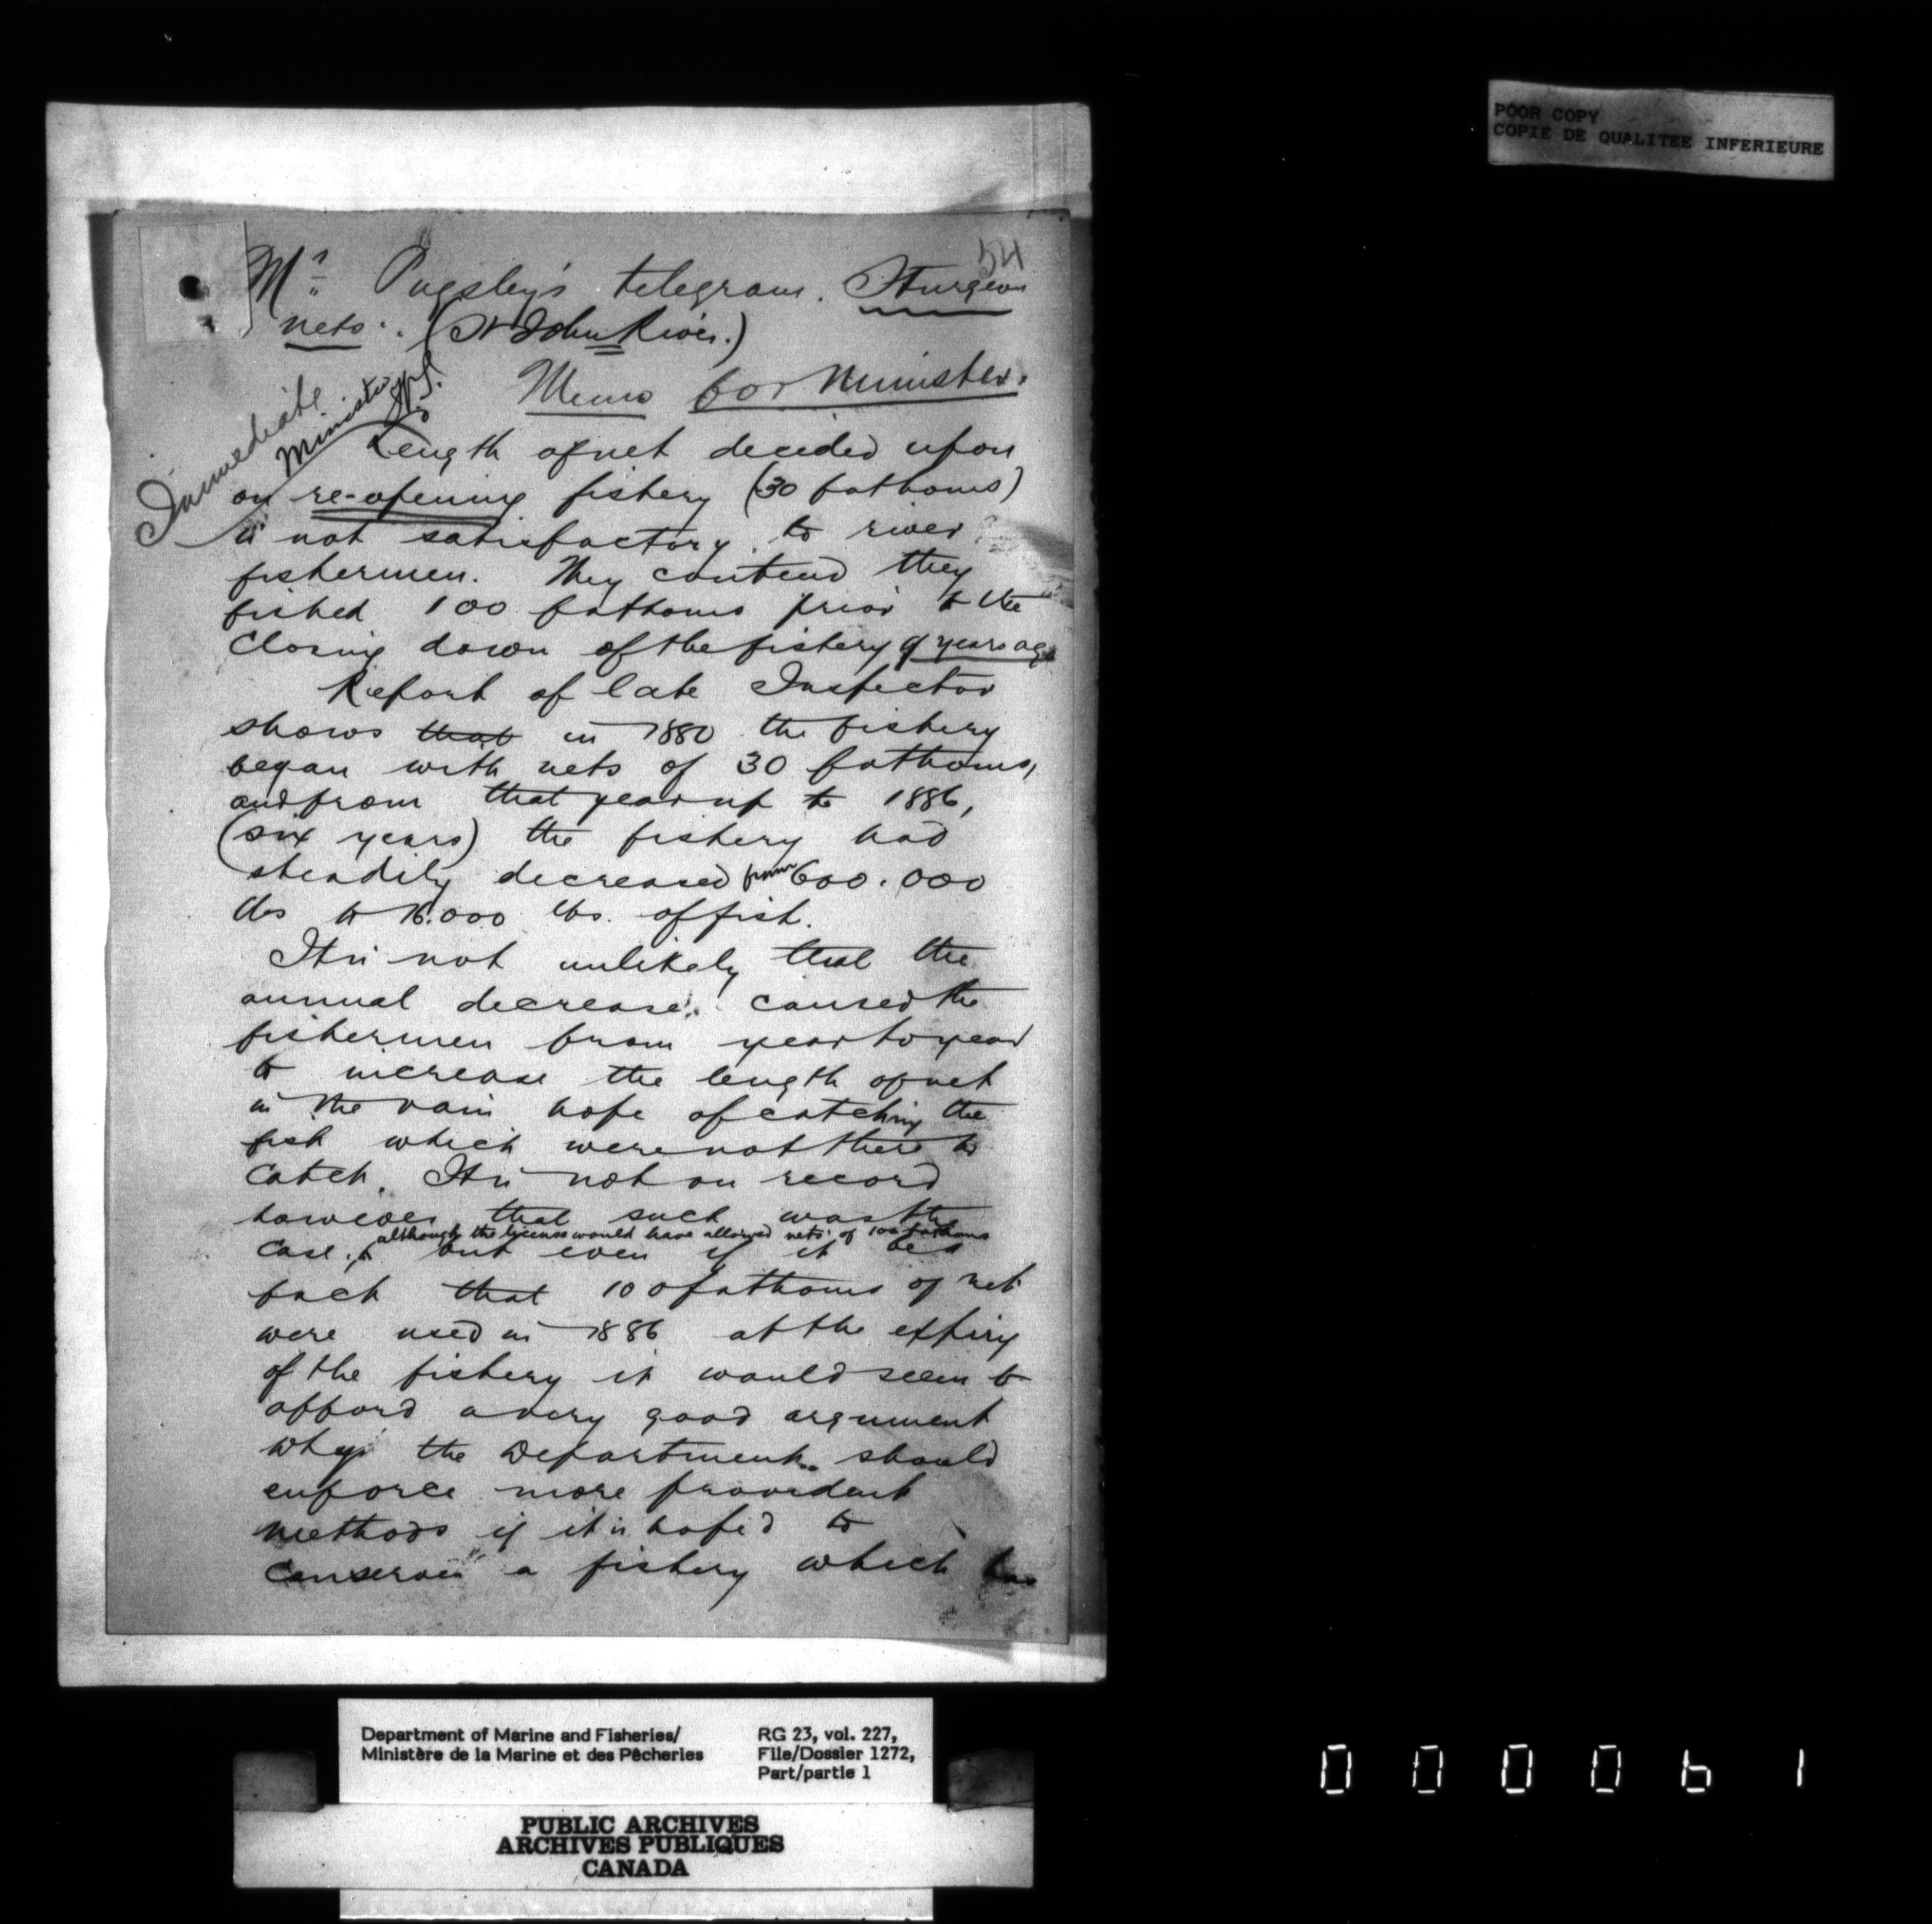 POOR COPY
COPIE DE QUALITEE INFERIEURE
54
Mr. Pugsley's telegram. Sturgeon
nets. (St John River.)
Immediate
Minister
Memo for Minister.
Length of net decided upon
on re-opening fishery (30 fathoms)
is not satisfactory to river
fishermen. They contend they
fished 100 fathoms prior to the
closing down of the fishery 9 years ago
Report of late Inspector
shows that in 1880 the fishery
began with nets of 30 fathoms,
and from that year up to 1886,
(six years) the fishery had
steadily decreased from 600.000
lbs to 16.000 lbs. of fish.
It is not unlikely that the
annual decrease caused the
fishermen from year to year
to increase the length of net
in the vain hope of catching the
fish which were not there to
catch. It is not on record
however that such was the
although the license would have allowed nets of 100 fathoms
case, but even if it be a
fact that 100 fathoms of net
were used in 1886 at the expiry
of the fishery it would seem to
afford a very good argument
why the Department should
enforce more provident
methods if it is hoped to
conserve a fishery which has
Department of Marine and Fisheries/
Ministère de la Marine et des Pêcheries
RG 23, vol. 227,
File/Dossier 1272,
Part/partie 1
PUBLIC ARCHIVES
ARCHIVES PUBLIQUES
CANADA
000061